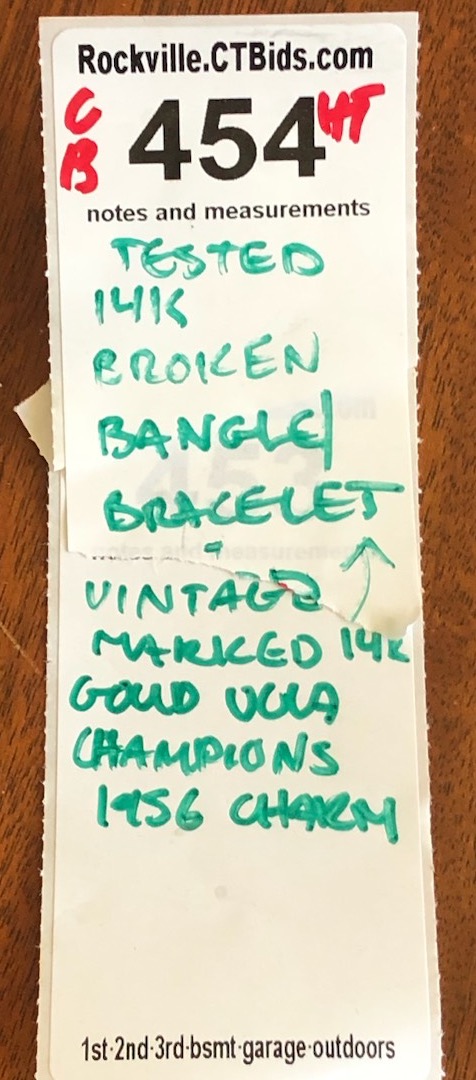 Rockville.CTBids.com
C B 454 HT
notes and measurements
TESTED
14K
BROKEN
BANGLE/
BRACELET
VINTAGE
MARKED 14K
GOLD UCLA
CHAMPIONS
1956 CHARM
1st·2nd·3rd·bsmt·garage·outdoors